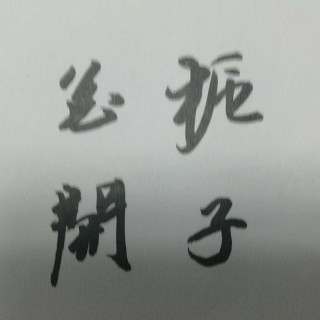 栀子
花開